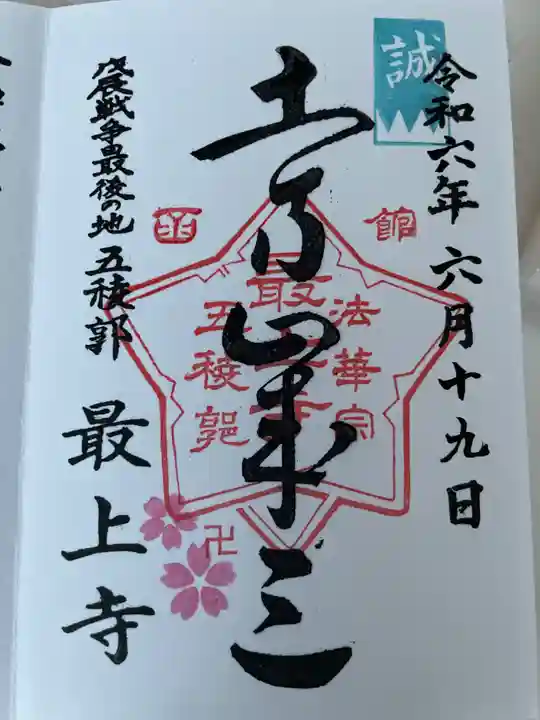 誠
令和六年 六月十九日
土方歳三
函館
法華宗
最上寺
五稜郭
卍
戊辰戦争最後の地 五稜郭 最上寺